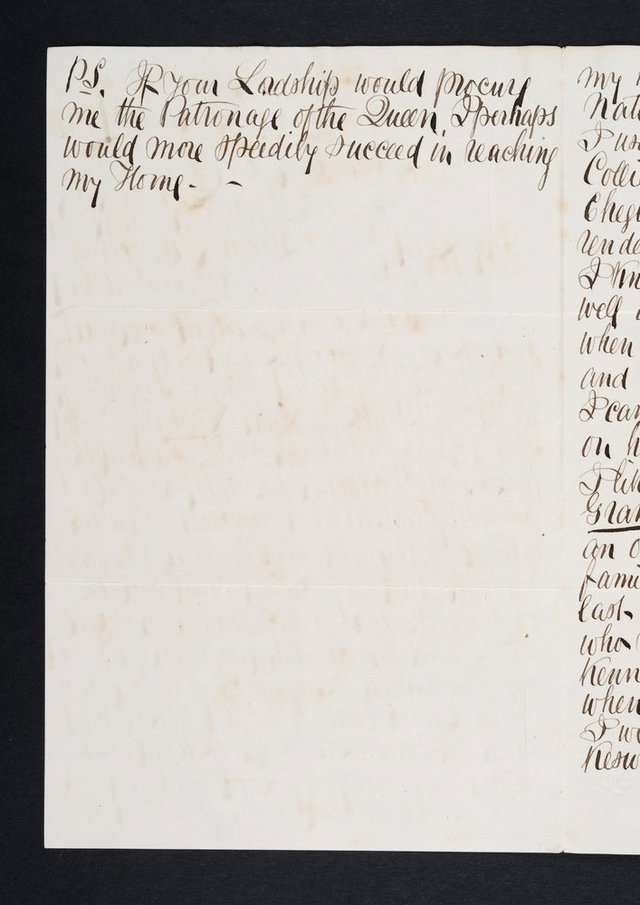 P.S. If your Lordship would procure
me the Patronage of the Queen, I perhaps
would more speedily succeed in reaching
my Home. –
my
Nat
I us
Colli
Cheq
rende
I kn
well
when
and
I can
on h
I lik
Gran
an o
fami
east
who
Kenn
when
I wo
Kesw